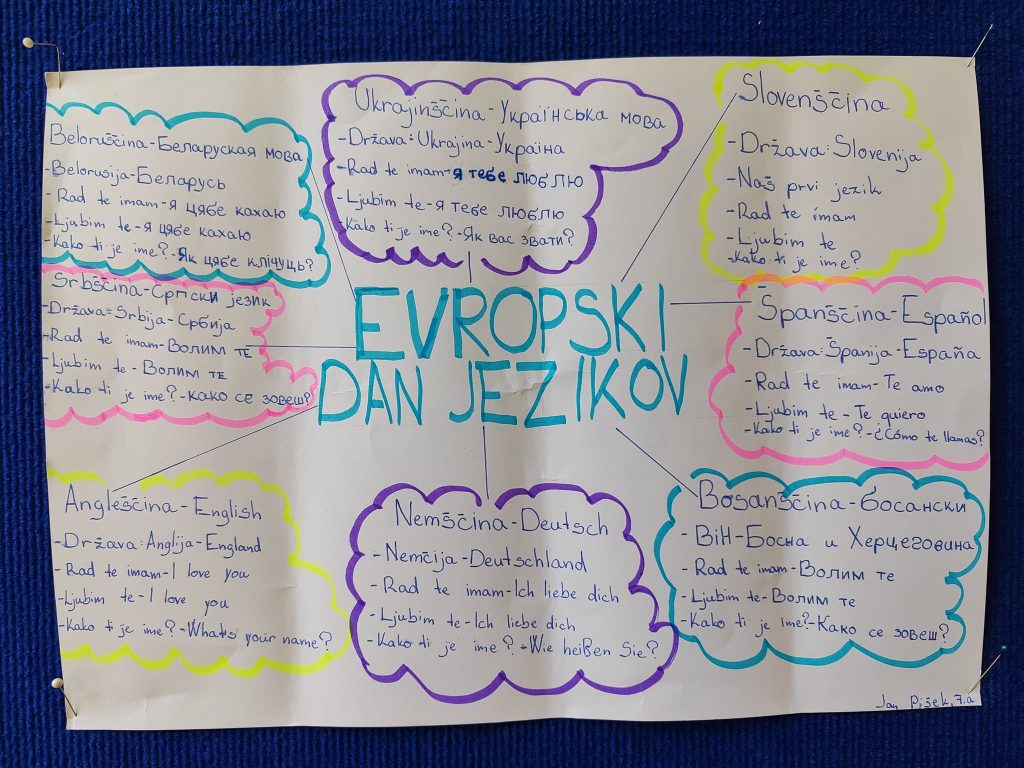 Beloruščina-Беларуская мова
-Belorusija-Беларусь
- Rad te imam-я цябе кахаю
-Ljubim te-я цябе кахаю
-Kako ti je ime?-Як цябе клічуць?
Ukrajinščina-Українська мова
-Država:Ukrajina-Україна
-Rad te imam-я тебе люблю
-Ljubim te-я тебе люблю
-Kako ti je ime?-Як вас звати?
Slovenščina
-Država:Slovenija
-Naš prvi jezik
-Rad te imam
-Ljubim te
-Kako ti je ime?
Srbščina-Српски језик
-Država:Srbija-Србија
-Rad te imam-Волим те
-Ljubim te-Волим те
-Kako ti je ime?-Како се зовеш?
EVROPSKI
DAN JEZIKOV
Španščina-Español
-Država:Španija-España
-Rad te imam-Te amo
-Ljubim te-Te quiero
-Kako ti je ime?-¿Cómo te llamas?
Angleščina-English
-Država:Anglija-England
-Rad te imam-I love you
-Ljubim te-I love you
-Kako ti je ime?-What's your name?
Nemščina-Deutsch
-Nemčija-Deutschland
-Rad te imam-Ich liebe dich
-Ljubim te-Ich liebe dich
-Kako ti je ime?-Wie heißen Sie?
Bosanščina-босански
-BiH-Босна и Херцеговина
-Rad te imam-Волим те
-Ljubim te-Волим те
-Kako ti je ime?-Како се зовеш?
Jan Pišek, 7.a